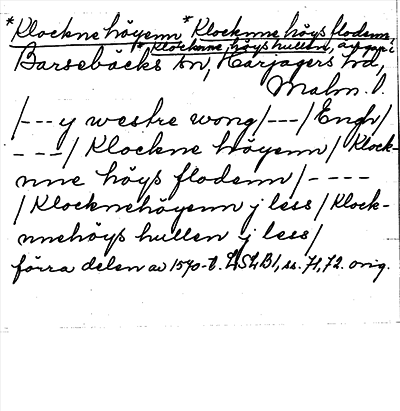 *Klockne höyenn *Klocknne höys flodenn,
*Klocknne höys hullen,
Barsebäcks sn, Harjagers hd,
Malm. l.
/---y westre wong/---/Engh/
---/Klockne höyenn/Klock-
nne höys flodenn/----
/Klocknehöyenn j less/Klock-
nnehöys hullen j less/
förra delen av 1570-t. LSLB1, ss. 71, 72. orig.